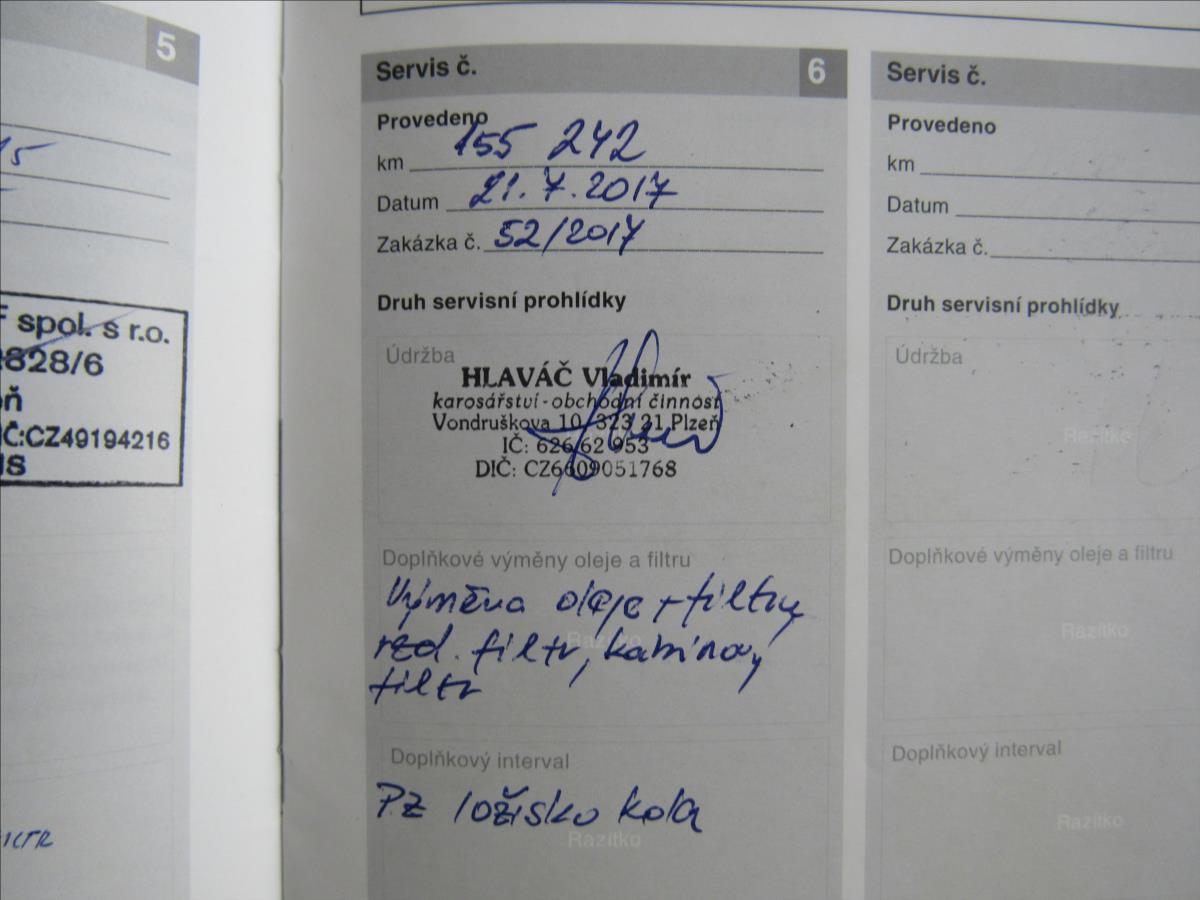 5
15
F spol. s r.o.
2828/6
ň
IČ:CZ49194216
US
Servis č. 6
Provedeno
km 155 242
Datum 21.7.2017
Zakázka č. 52/2017
Druh servisní prohlídky
Údržba
HLAVÁČ Vladimír
karosářství - obchodní činnost
Vondruškova 10, 323 21 Plzeň
IČ: 626 62 953
DIČ: CZ6609051768
Doplňkové výměny oleje a filtru
Výměna oleje + filtru
vzd. filtr, kabinový
filtr
Razítko
Doplňkový interval
PZ ložisko kola
Razítko
Servis č.
Provedeno
km
Datum
Zakázka č.
Druh servisní prohlídky
Údržba
Razítko
Doplňkové výměny oleje a filtru
Razítko
Doplňkový interval
Razítko